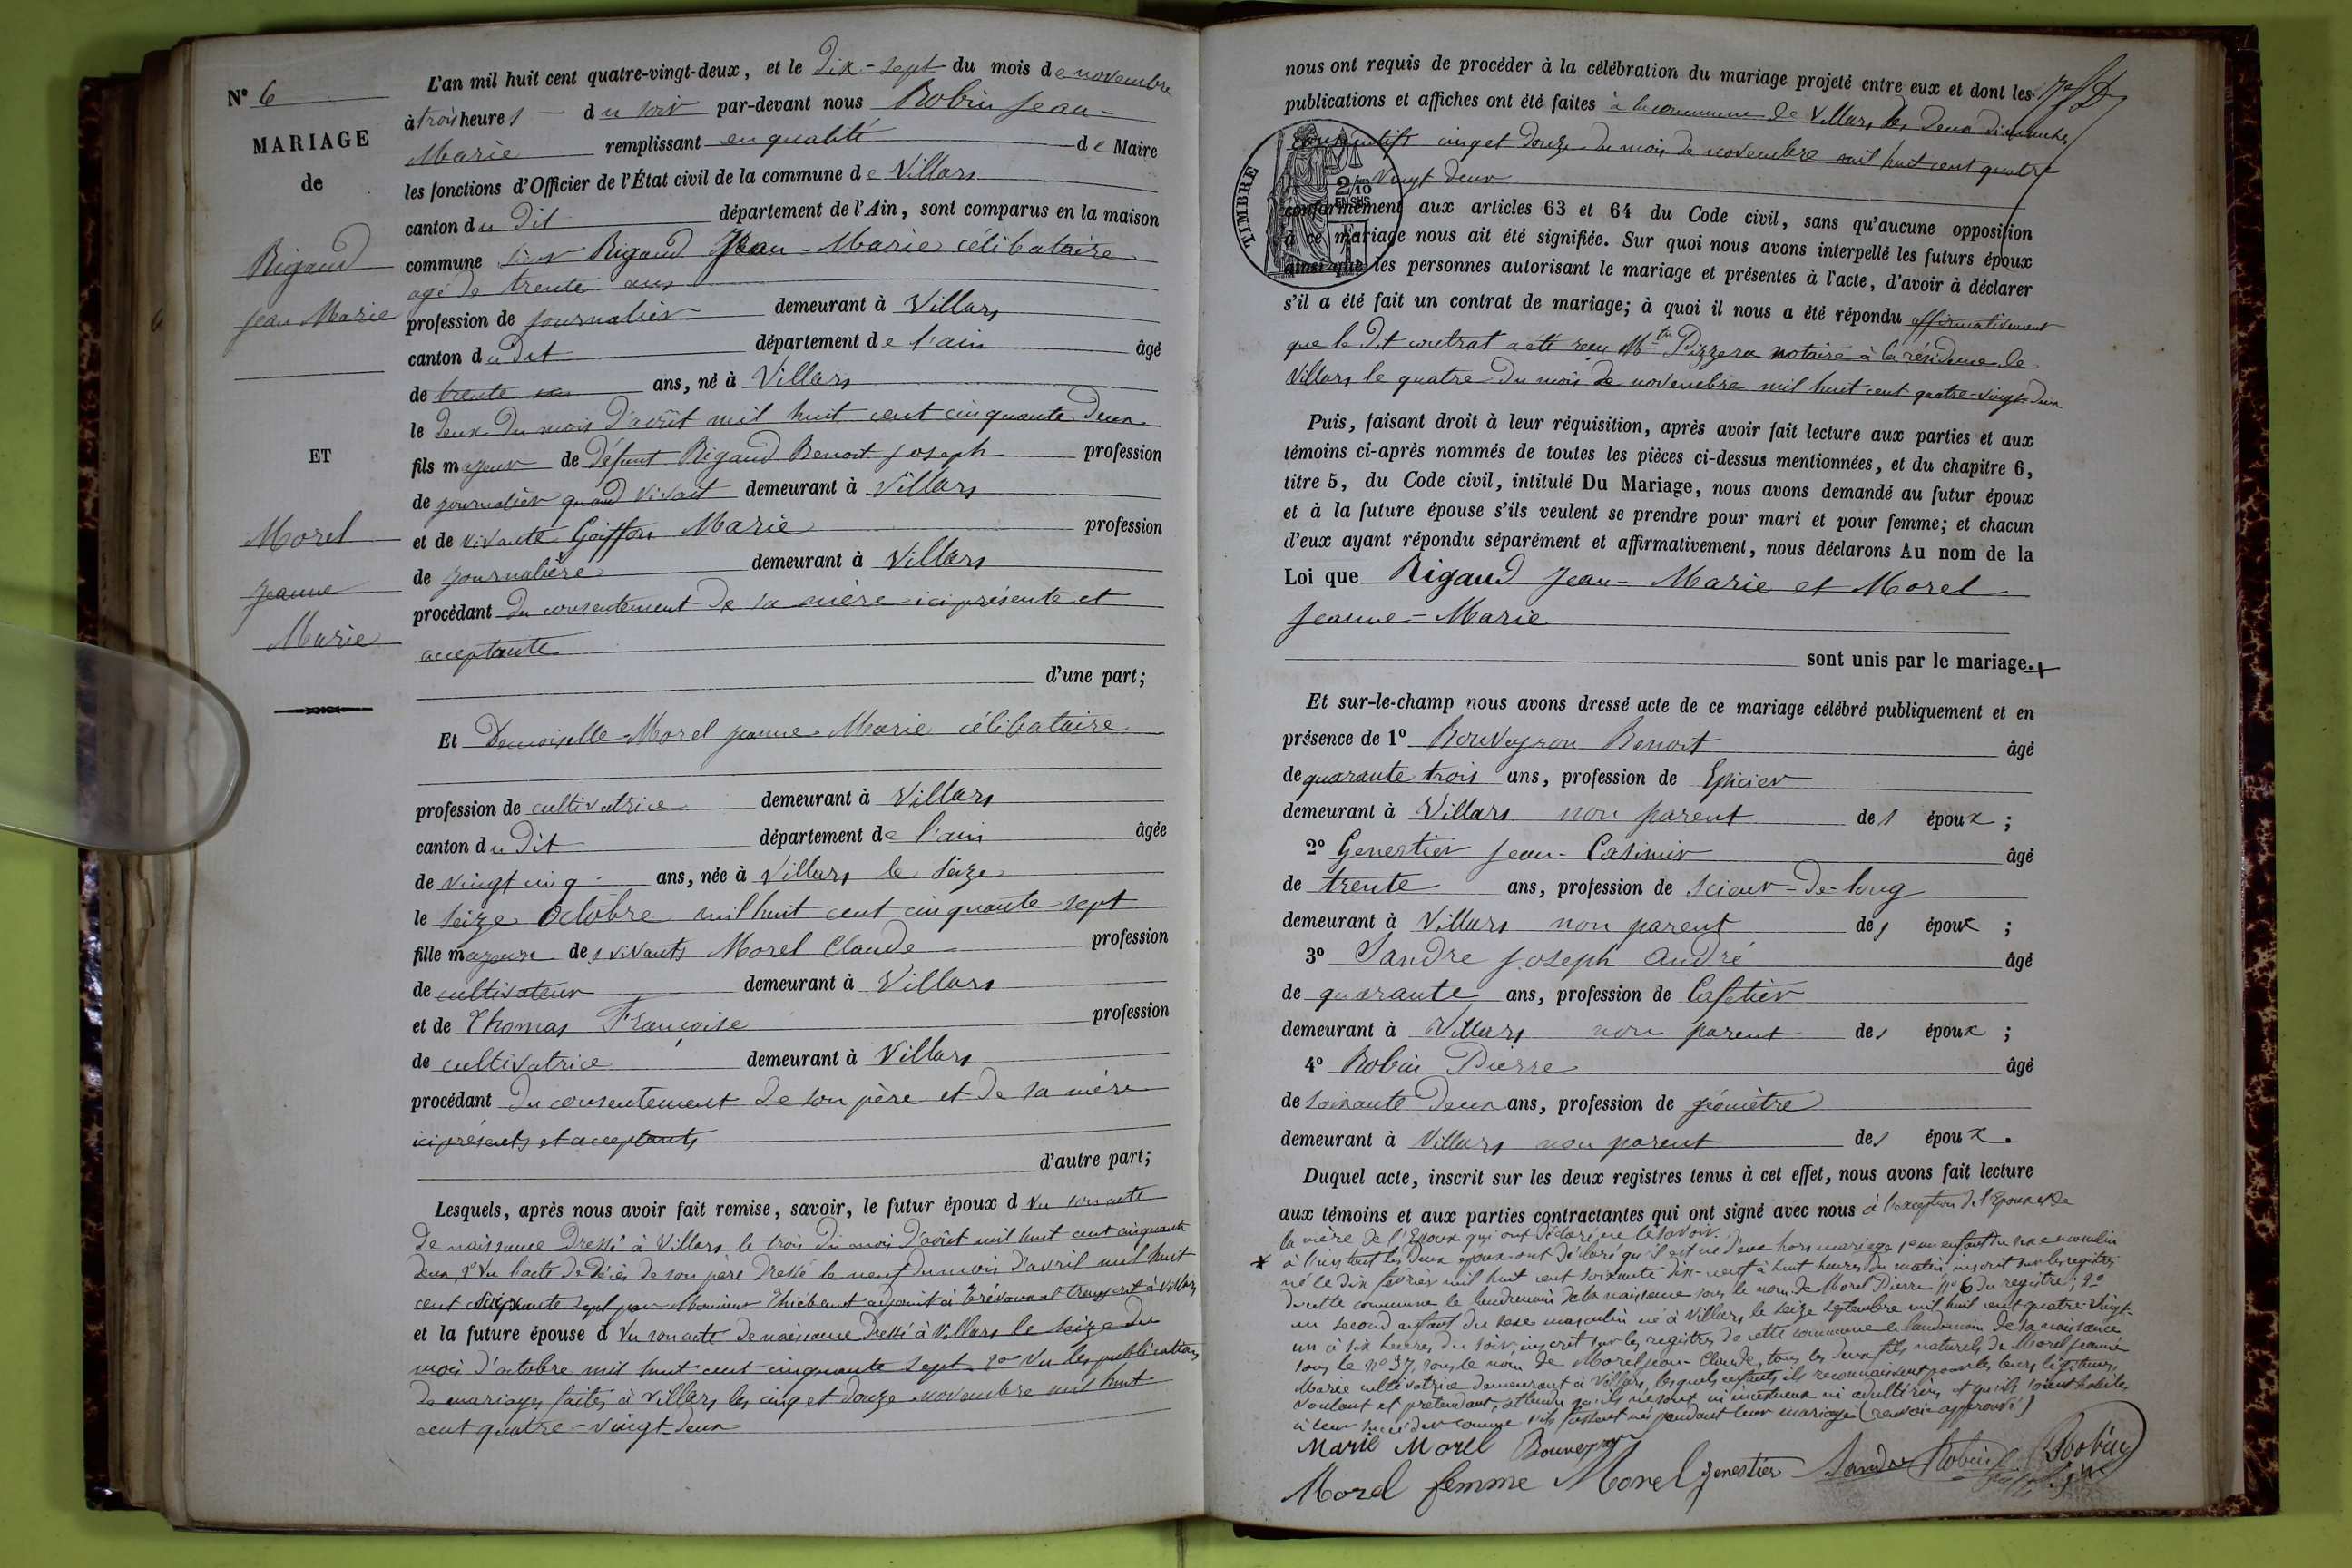 N° 6
MARIAGE
de
Rigaud
Jean Marie
ET
Morel
Jeanne
Marie
L'an mil huit cent quatre-vingt-deux, et le Dix-sept du mois de novembre
à trois heures du soir par-devant nous Robin Jean-
Marie remplissant en qualité de Maire
les fonctions d'Officier de l'État civil de la commune de Villars
canton du Dit département de l'Ain, sont comparus en la maison
commune Rigaud Jean-Marie célibataire
agé de trente ans
profession de journalier demeurant à Villars
canton du Dit département de l'ain âgé
de trente ans, né à Villars
le deux du mois d'août mil huit cent cinquante deux
fils majeur de défunt Rigaud Benoit Joseph profession
de journalier quand vivait demeurant à Villars
et de vivante Goiffon Marie profession
de journalière demeurant à Villars
procédant du consentement de sa mère ici présente et
acceptante
d'une part;
Et Demoiselle Morel Jeanne-Marie célibataire
profession de cultivatrice demeurant à Villars
canton du Dit département de l'ain âgée
de vingt cinq ans, née à Villars le seize
le seize Octobre mil huit cent cinquante sept
fille majeure des vivants Morel Claude profession
de cultivateur demeurant à Villars
et de Thomas Françoise profession
de cultivatrice demeurant à Villars
procédant du consentement de son père et de sa mère
ici présents et acceptants
d'autre part;
Lesquels, après nous avoir fait remise, savoir, le futur époux d Vu son acte
de naissance dressé à Villars le trois du mois d'août mil huit cent cinquante
deux, 2° Vu l'acte de décès de son père dressé le neuf du mois d'avril mil huit
cent soixante sept par Monsieur Thiébaut adjoint à Trévoux et transcrit à Villars
et la future épouse d Vu son acte de naissance dressé à Villars le seize du
mois d'octobre mil huit cent cinquante sept 2° Vu les publications
de mariages faites à Villars les cinq et douze novembre mil huit
cent quatre-vingt-deux
nous ont requis de procéder à la célébration du mariage projeté entre eux et dont les
publications et affiches ont été faites à la commune de Villars les deux dimanches
consécutifs cinq et douze du mois de novembre mil huit cent quatre
Vingt deux
TIMBRE
2/10
EN SUS
conformément aux articles 63 et 64 du Code civil, sans qu'aucune opposition
à ce mariage nous ait été signifiée. Sur quoi nous avons interpellé les futurs époux
ainsi que les personnes autorisant le mariage et présentes à l'acte, d'avoir à déclarer
s'il a été fait un contrat de mariage; à quoi il nous a été répondu affirmativement
que le Dit contrat a été reçu Mtre Pizzera notaire à la résidence de
Villars le quatre du mois de novembre mil huit cent quatre-vingt-deux
Puis, faisant droit à leur réquisition, après avoir fait lecture aux parties et aux
témoins ci-après nommés de toutes les pièces ci-dessus mentionnées, et du chapitre 6,
titre 5, du Code civil, intitulé Du Mariage, nous avons demandé au futur époux
et à la future épouse s'ils veulent se prendre pour mari et pour femme; et chacun
d'eux ayant répondu séparément et affirmativement, nous déclarons Au nom de la
Loi que Rigaud Jean-Marie et Morel
Jeanne-Marie
sont unis par le mariage.
Et sur-le-champ nous avons dressé acte de ce mariage célébré publiquement et en
présence de 1° Bouveyron Benoit âgé
de quarante trois ans, profession de Epicier
demeurant à Villars non parent des époux;
2° Genestier Jean-Casimir âgé
de trente ans, profession de scieur-de-long
demeurant à Villars non parent des époux;
3° Sandre Joseph André âgé
de quarante ans, profession de Cafetier
demeurant à Villars non parent des époux;
4° Robin Pierre âgé
de soixante deux ans, profession de géomètre
demeurant à Villars non parent des époux.
Duquel acte, inscrit sur les deux registres tenus à cet effet, nous avons fait lecture
aux témoins et aux parties contractantes qui ont signé avec nous à l'exception de l'Epoux et de
la mère de l'Epoux qui ont déclaré ne le savoir.
* à l'instant les deux époux ont déclaré qu'il est né d'eux hors mariage 1° un enfant du sexe masculin
né le dix février mil huit cent soixante dix-neuf à huit heures du matin inscrit sur les registres
de cette commune le lendemain de la naissance sous le nom de Morel Pierre n° 6 du registre; 2°
un second enfant du sexe masculin né à Villars le seize septembre mil huit cent quatre-vingt-
un à six heures du soir, inscrit sur les registres de cette commune le lendemain de sa naissance
sous le n° 37, sous le nom de Morel Jean-Claude, tous les deux fils naturels de Morel Jeanne
Marie cultivatrice demeurant à Villars, lesquels enfants ils reconnaissent pour les leurs légitimes,
voulant et prétendant, attendu qu'ils ne sont ni incestueux ni adultérins et qu'ils soient habiles
à leur succéder comme s'ils fussent nés pendant leur mariage (renvoi approuvé)
Marie Morel Bouveyron
Morel femme Morel Genestier Sandre Robin Robin